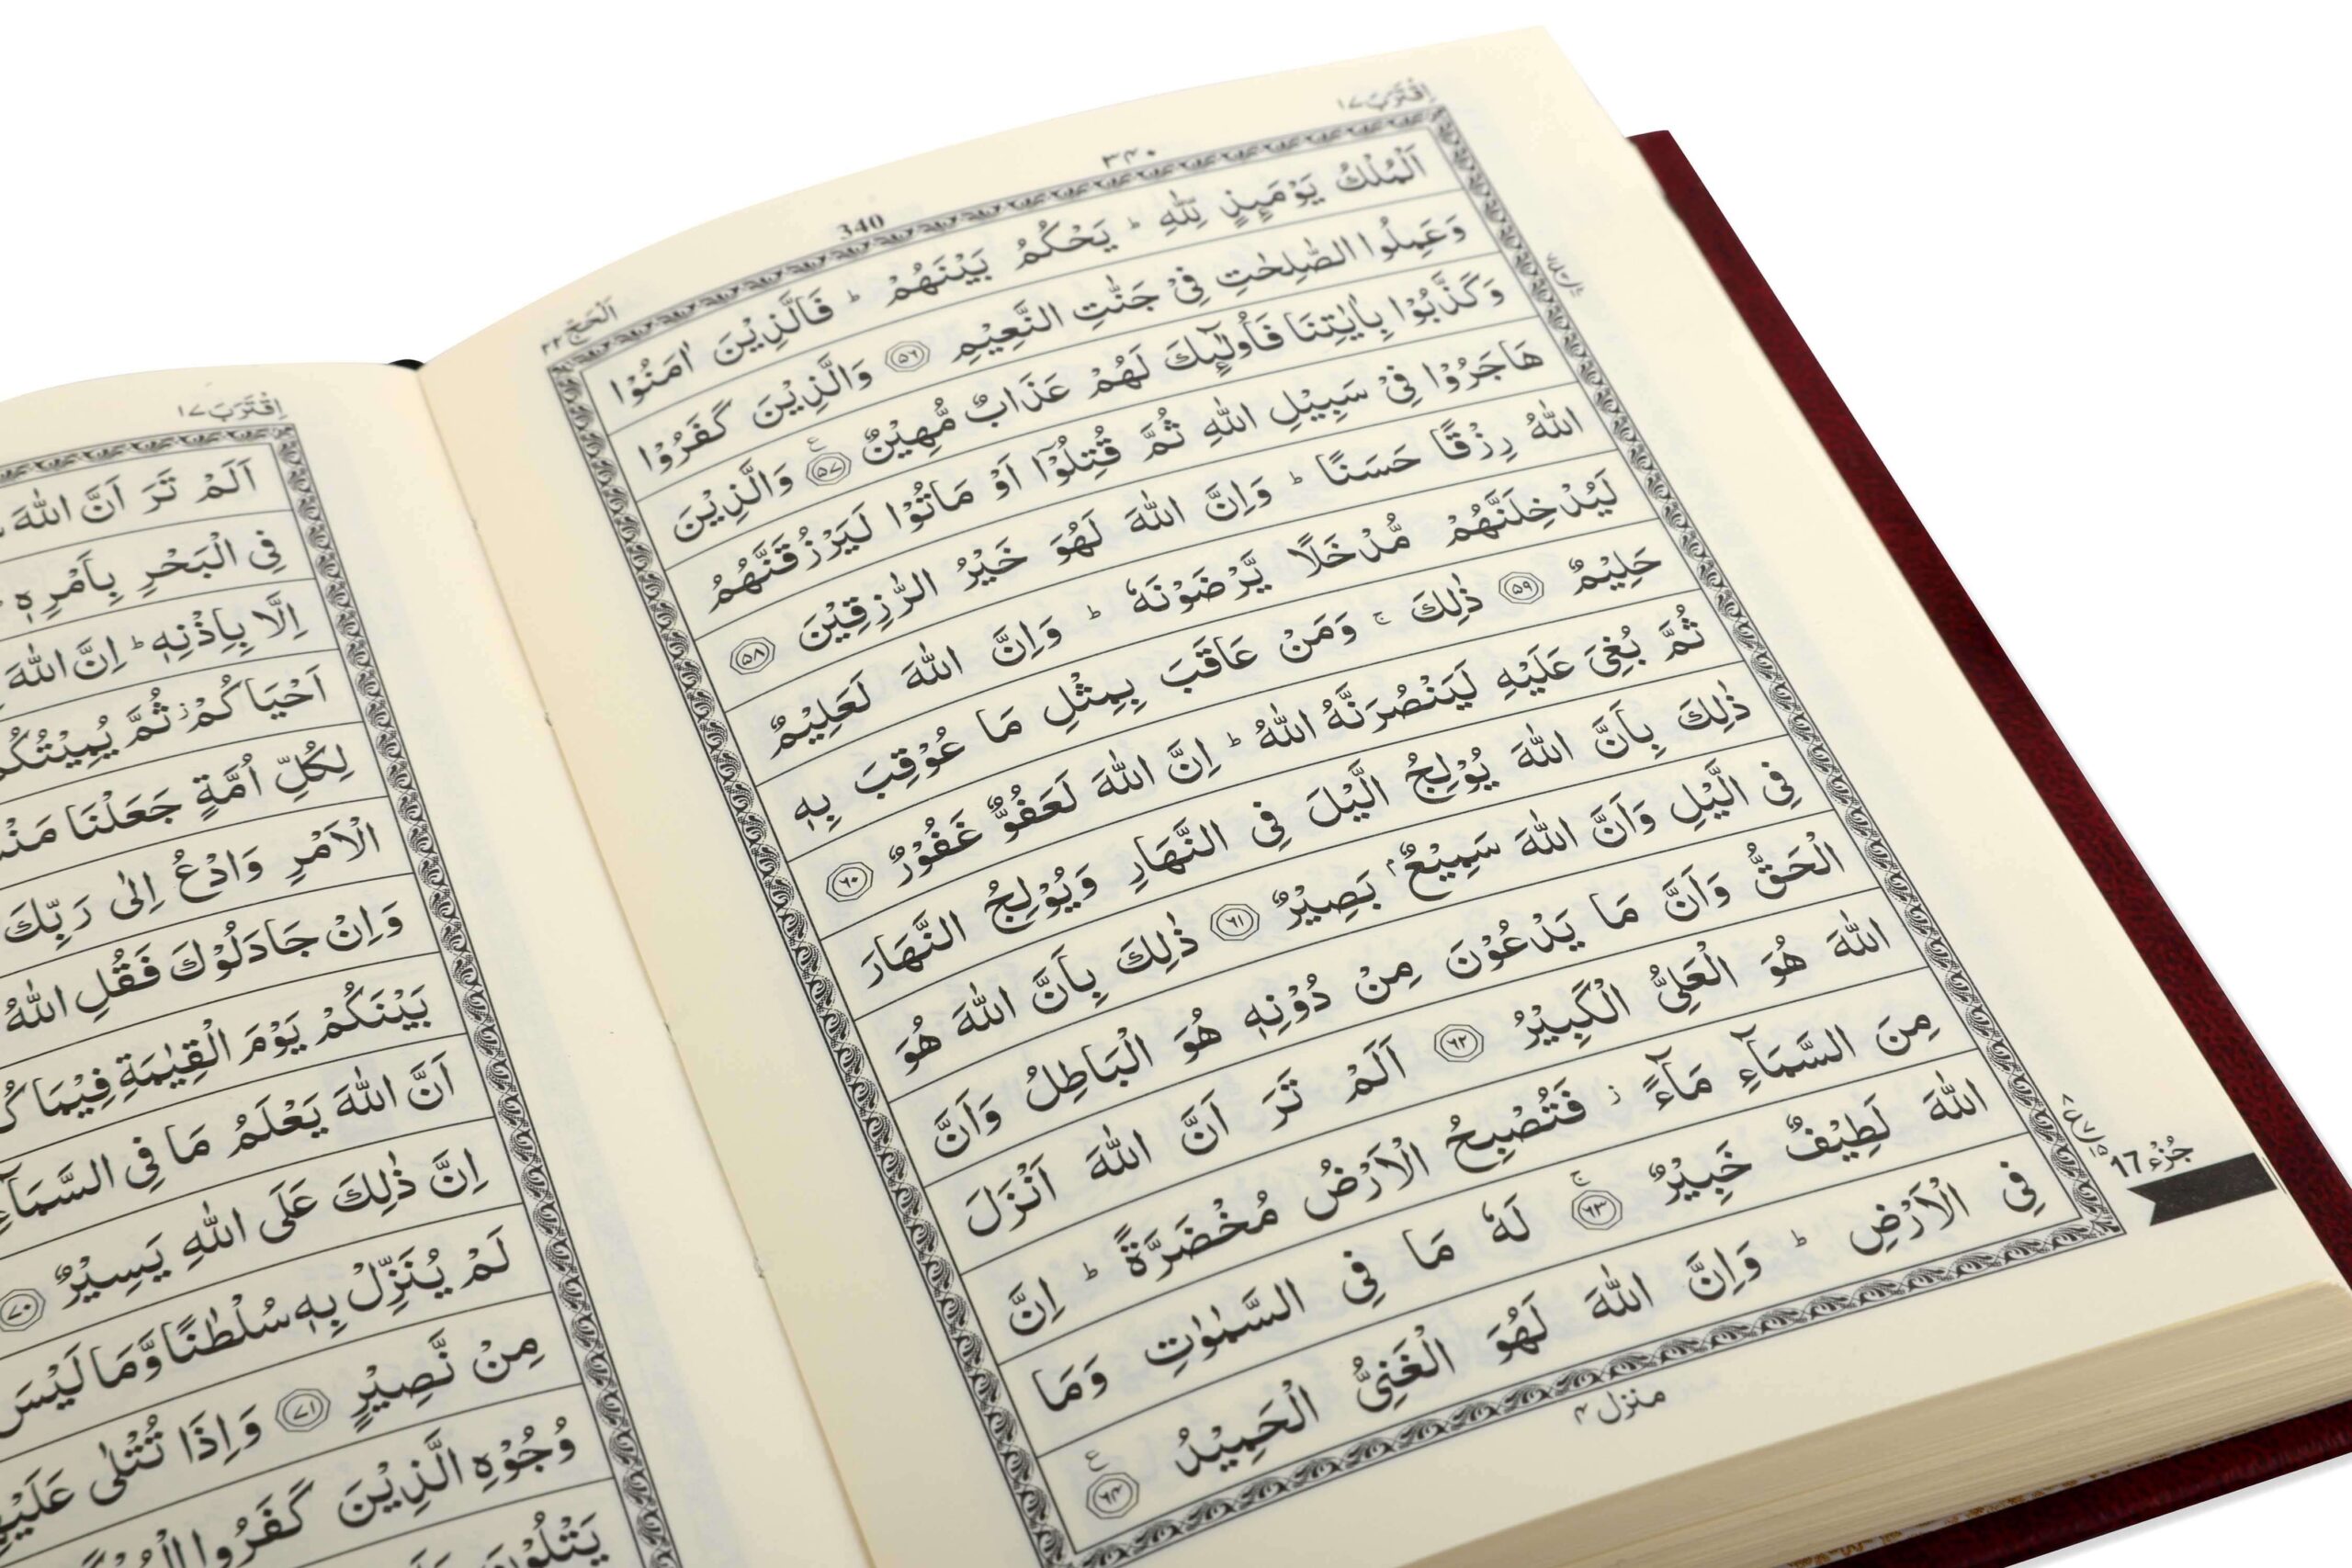 اِقْتَرَبَ ١٧
٣٤٠
340
اَلْحَجّ ٢٢
اَلْمُلْكُ يَوْمَىِٕذٍ لِّلّٰهِ ؕ يَحْكُمُ بَيْنَهُمْ ؕ فَالَّذِيْنَ اٰمَنُوْا
وَعَمِلُوا الصّٰلِحٰتِ فِيْ جَنّٰتِ النَّعِيْمِ ۝٥٦ وَالَّذِيْنَ كَفَرُوْا
وَكَذَّبُوْا بِاٰيٰتِنَا فَاُولٰٓىِٕكَ لَهُمْ عَذَابٌ مُّهِيْنٌ ۝٥٧ ع وَالَّذِيْنَ
هَاجَرُوْا فِيْ سَبِيْلِ اللّٰهِ ثُمَّ قُتِلُوْٓا اَوْ مَاتُوْا لَيَرْزُقَنَّهُمُ
اللّٰهُ رِزْقًا حَسَنًا ؕ وَاِنَّ اللّٰهَ لَهُوَ خَيْرُ الرّٰزِقِيْنَ ۝٥٨
لَيُدْخِلَنَّهُمْ مُّدْخَلًا يَّرْضَوْنَهٗ ؕ وَاِنَّ اللّٰهَ لَعَلِيْمٌ
حَلِيْمٌ ۝٥٩ ذٰلِكَ ۚ وَمَنْ عَاقَبَ بِمِثْلِ مَا عُوْقِبَ بِهٖ
ثُمَّ بُغِيَ عَلَيْهِ لَيَنْصُرَنَّهُ اللّٰهُ ؕ اِنَّ اللّٰهَ لَعَفُوٌّ غَفُوْرٌ ۝٦٠
ذٰلِكَ بِاَنَّ اللّٰهَ يُوْلِجُ الَّيْلَ فِي النَّهَارِ وَيُوْلِجُ النَّهَارَ
فِي الَّيْلِ وَاَنَّ اللّٰهَ سَمِيْعٌۢ بَصِيْرٌ ۝٦١ ذٰلِكَ بِاَنَّ اللّٰهَ هُوَ
الْحَقُّ وَاَنَّ مَا يَدْعُوْنَ مِنْ دُوْنِهٖ هُوَ الْبَاطِلُ وَاَنَّ
اللّٰهَ هُوَ الْعَلِيُّ الْكَبِيْرُ ۝٦٢ اَلَمْ تَرَ اَنَّ اللّٰهَ اَنْزَلَ
مِنَ السَّمَآءِ مَآءً ؗ فَتُصْبِحُ الْاَرْضُ مُخْضَرَّةً ؕ اِنَّ
اللّٰهَ لَطِيْفٌ خَبِيْرٌ ۝٦٣ ۚ لَهٗ مَا فِي السَّمٰوٰتِ وَمَا
فِي الْاَرْضِ ؕ وَاِنَّ اللّٰهَ لَهُوَ الْغَنِيُّ الْحَمِيْدُ ۝٦٤ ع
منزل ٤
جُزْء 17
اِقْتَرَبَ ١٧
اَلَمْ تَرَ اَنَّ اللّٰهَ
فِي الْبَحْرِ بِاَمْرِهٖ
اِلَّا بِاِذْنِهٖ ؕ اِنَّ اللّٰهَ
اَحْيَاكُمْ ؗ ثُمَّ يُمِيْتُكُمْ
لِكُلِّ اُمَّةٍ جَعَلْنَا
الْاَمْرِ وَادْعُ اِلٰى رَبِّكَ
وَاِنْ جَادَلُوْكَ فَقُلِ اللّٰهُ
بَيْنَكُمْ يَوْمَ الْقِيٰمَةِ فِيْمَا
اَنَّ اللّٰهَ يَعْلَمُ مَا فِي السَّمَآءِ
اِنَّ ذٰلِكَ عَلَى اللّٰهِ يَسِيْرٌ ۝٧٠
لَمْ يُنَزِّلْ بِهٖ سُلْطٰنًا وَّمَا لَيْسَ
مِنْ نَّصِيْرٍ ۝٧١ وَاِذَا تُتْلٰى
وُجُوْهِ الَّذِيْنَ كَفَرُوا
يَتْلُوْنَ